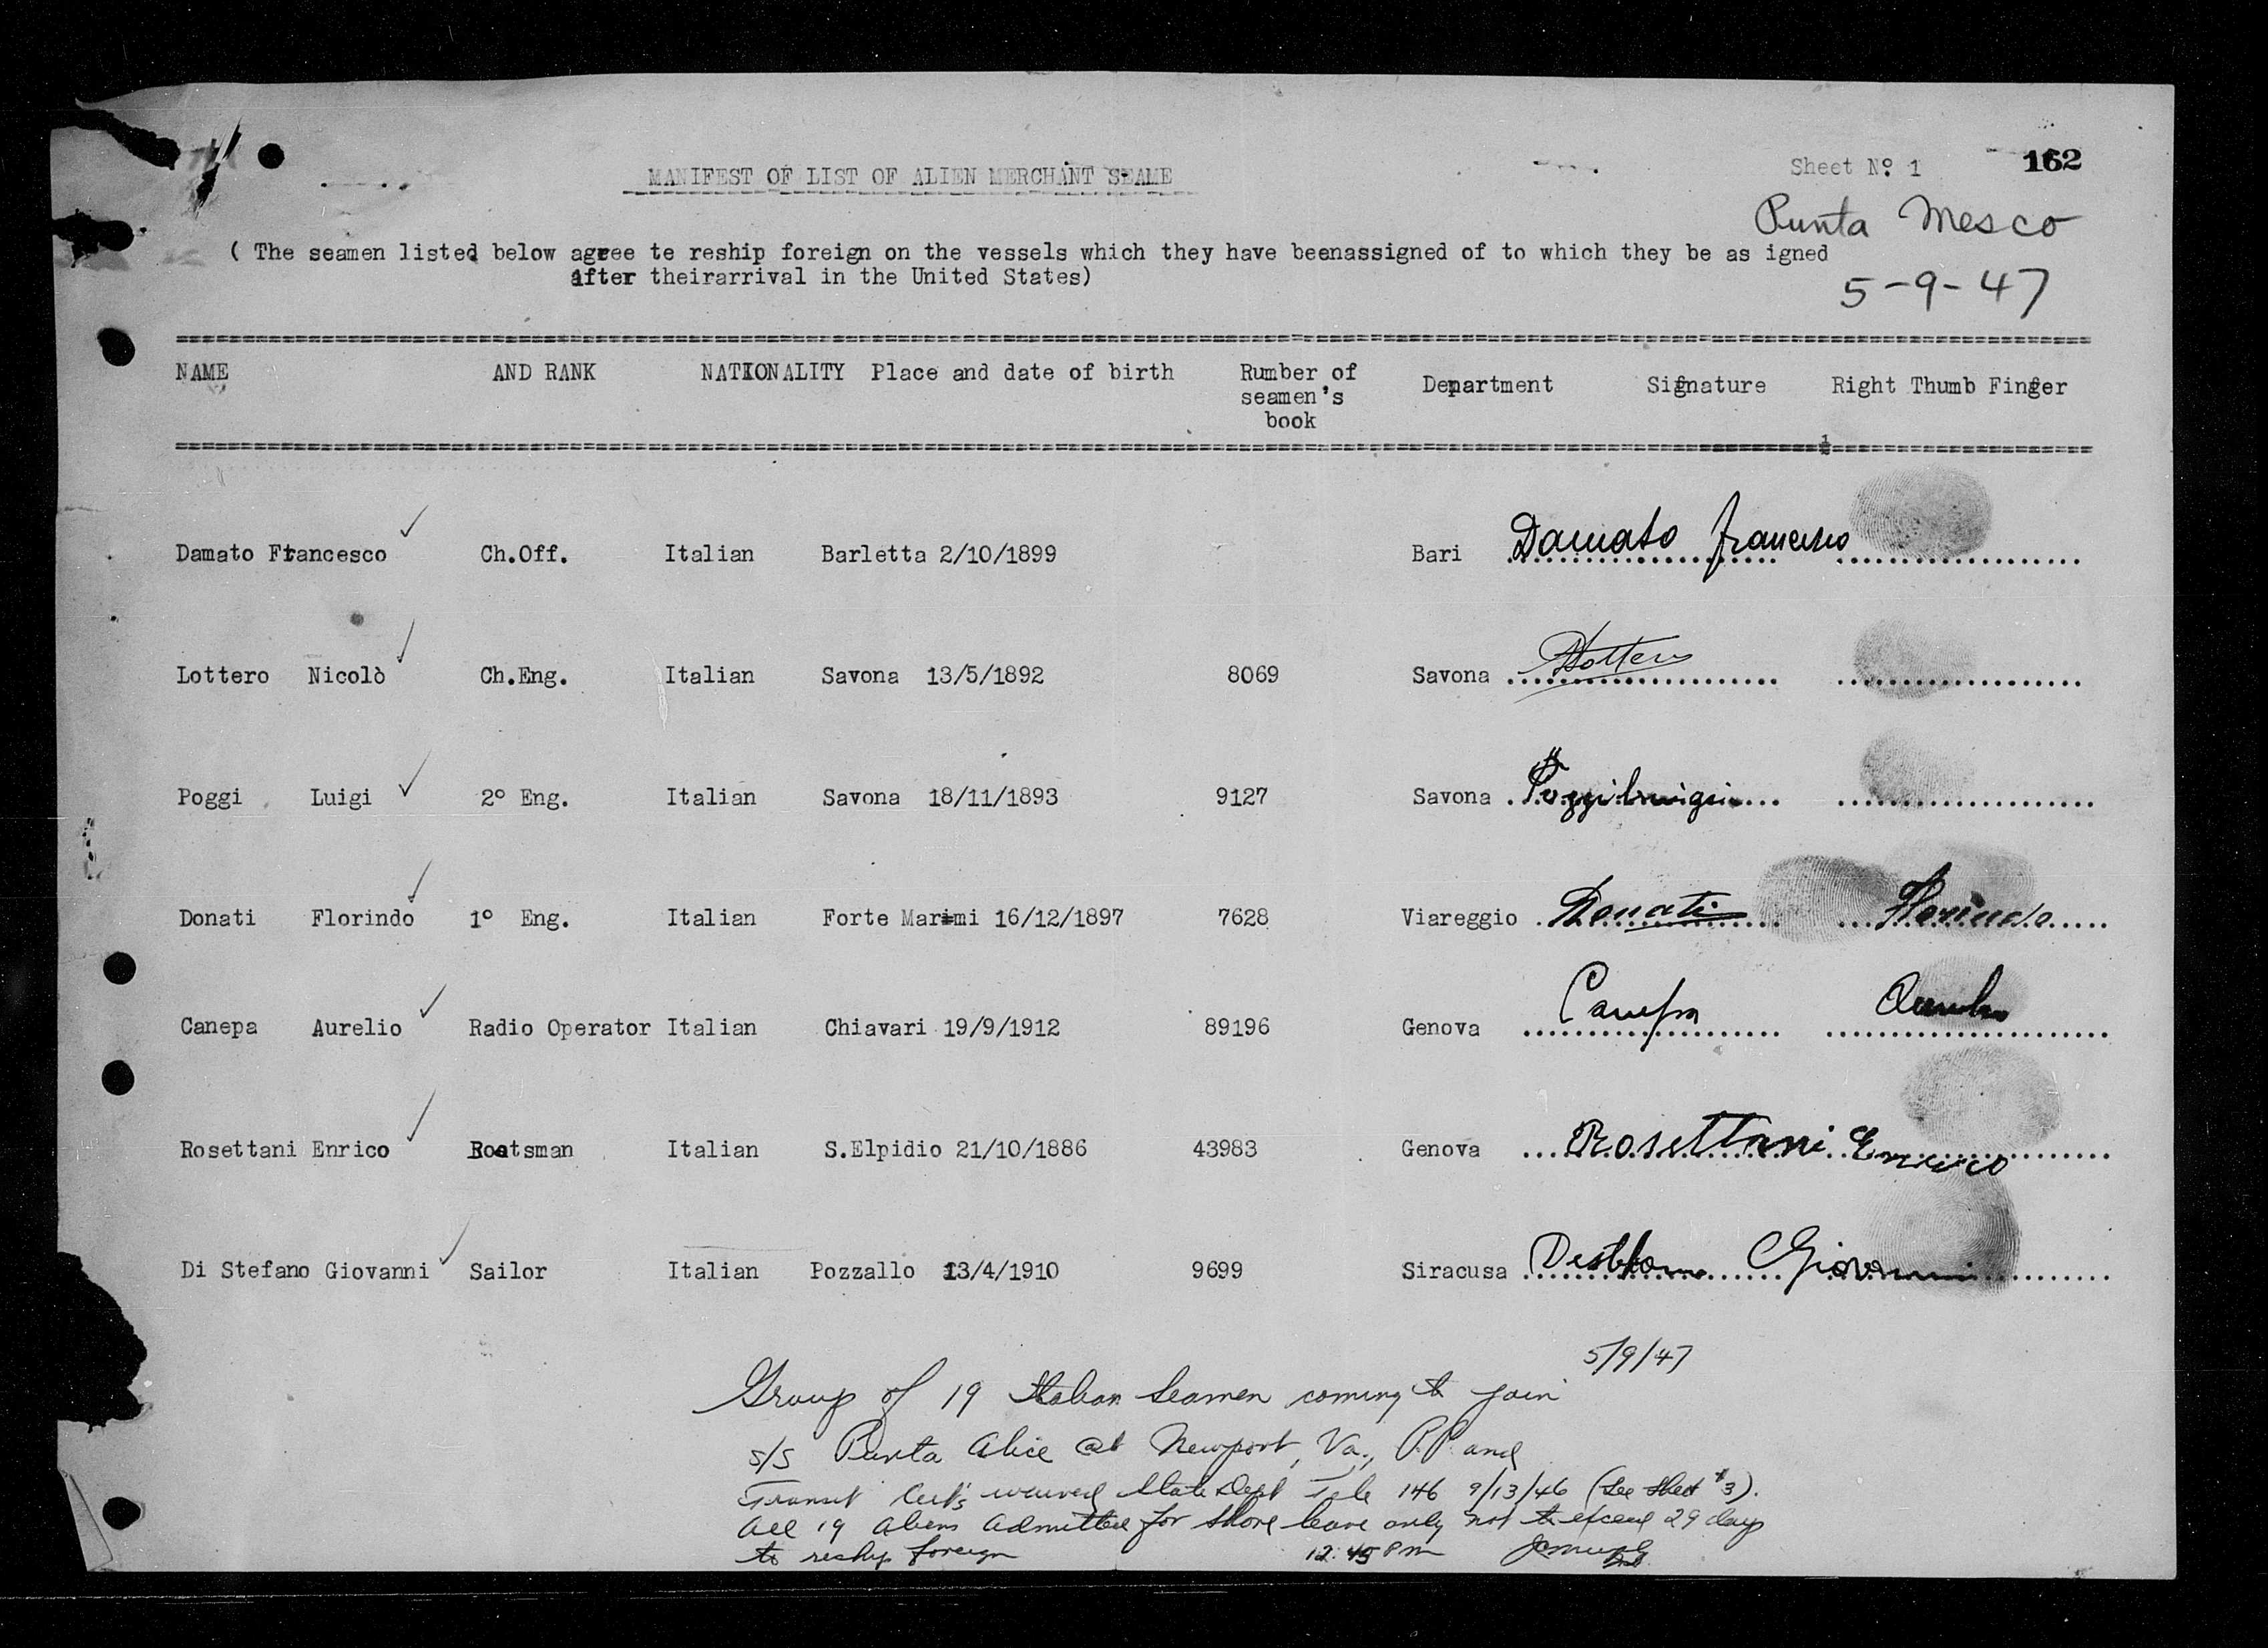 MANIFEST OF LIST OF ALIEN MERCHANT SEAME
Sheet Nº 1 162
Punta Mesco
( The seamen listed below agree te reship foreign on the vessels which they have beenassigned of to which they be as igned
after theirarrival in the United States)
5-9-47
NAME AND RANK NATIONALITY Place and date of birth Rumber of seamen's book Department Signature Right Thumb Finger
1
Damato Francesco Ch.Off. Italian Barletta 2/10/1899 Bari Damato Francesco
Lottero Nicolò Ch.Eng. Italian Savona 13/5/1892 8069 Savona Lottero
Poggi Luigi 2º Eng. Italian Savona 18/11/1893 9127 Savona Poggi Luigi
Donati Florindo 1º Eng. Italian Forte Marmi 16/12/1897 7628 Viareggio Donati Florindo
Canepa Aurelio Radio Operator Italian Chiavari 19/9/1912 89196 Genova Canepa Aurelio
Rosettani Enrico Boatsman Italian S.Elpidio 21/10/1886 43983 Genova Rosettani Enrico
Di Stefano Giovanni Sailor Italian Pozzallo 13/4/1910 9699 Siracusa Distefano Giovanni
5/9/47
Group of 19 Italian Seamen coming to join
S/S Punta Alice at Newport, Va., P.P. and
Transit Cert's waived State Dept Tele 146 9/13/46 (See sheet #3).
All 19 aliens admitted for shore leave only not to exceed 29 days
to reship foreign 12:45 PM